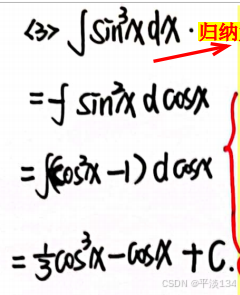 <3> ∫sin³xdx. 归纳
=-∫sin²xdcosx
=∫(cos²x-1)dcosx
=⅓cos³x-cosx+C.
CSDN @平淡134